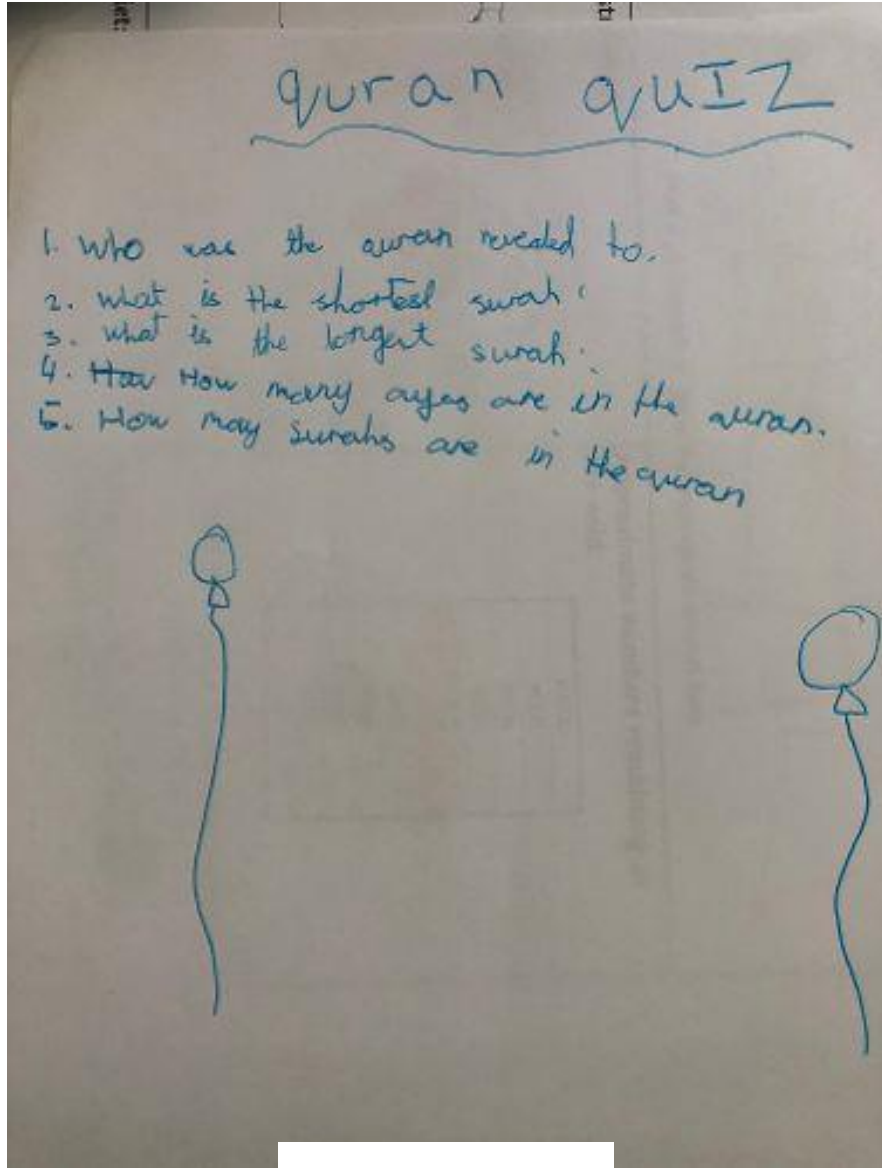 quran quIZ
1. Who was the quran revealed to.
2. what is the shortest surah.
3. what is the longest surah.
4. How many ayas are in the quran.
5. How may surahs are in the quran